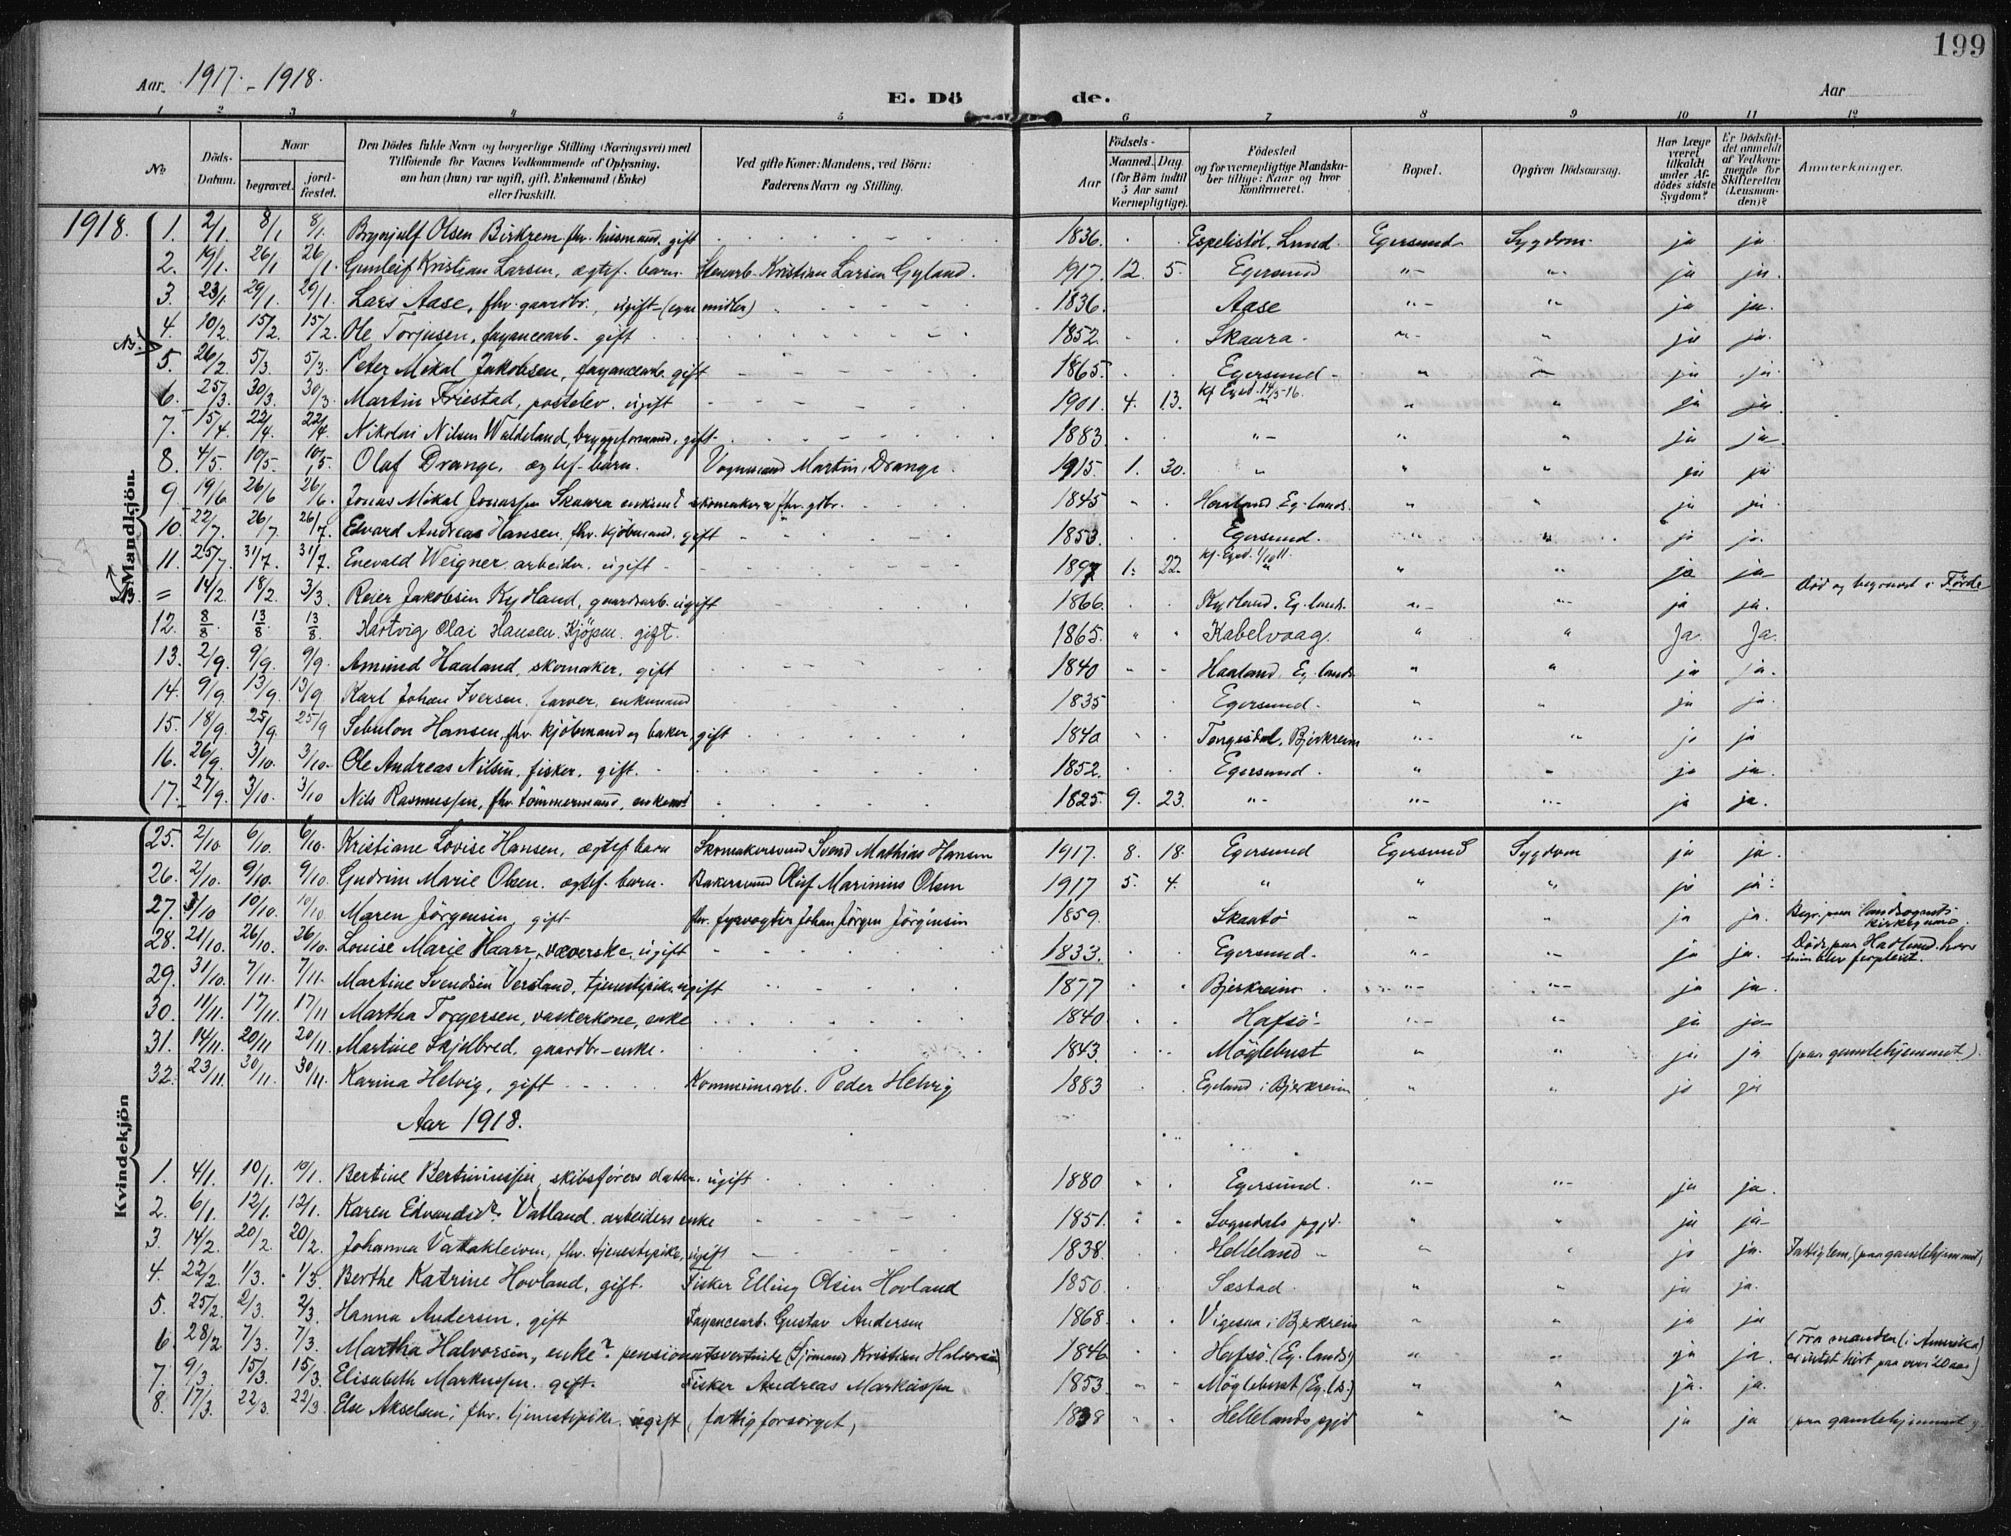 199
Aar 1917 - 1918. E. Dö de. Aar
1 2 3 4 5 6 7 8 9 10 11 12
No. Døds-Datum. Naar begravet. jordfæstet. Den Dödes fulde Navn og borgerlige Stilling (Næringsvei) med Tilföiende for Voxnes Vedkommende af Oplysning, om han (hun) var ugift, gift, Enkemand (Enke) eller fraskilt. Ved gifte Koner: Mandens, ved Börn: Faderens Navn og Stilling. Födsels- Aar Maaned. Dag (for Börn indtil 5 Aar samt Værnepligtige). Födested og for værnepligtige Mandskaber tillige: Naar og hvor konfirmeret. Bopæl. Opgiven Dödsaarsag. Har Læge været tilkaldt under Afdödes sidste Sygdom? Er Dödsfaldet anmeldt af Vedkommende for Skifteretten (Lensmanden)? Anmærkninger.
Mandkjön.
1918. 1. 2/1. 8/1 8/1. Brynjulf Olsen Birkrem fhv. husmand, gift 1836. Espelistöl, Lund. Egersund Sygdom ja ja
2. 19/1. 26/1 26/1. Gunleif Kristian Larsen, ægtef. barn. Stenarb. Kristian Larsen Gyland. 1917. 12. 5. Egersund "- "- ja ja.
3. 23/1 29/1. 29/1. Lars Aase, fhv. gaardbr., ugift - (egne midler) 1836. Aase "- " ja ja.
4. 10/2. 15/2 15/2. Ole Torjusen, fayancearb. gift 1852. Skaara. "- " ja ja.
5. 26/2 5/3. 5/3. Peter Mikal Jakobsen, fayancearb. gift 1865. Egersund - " " ja ja
6. 25/3. 30/3. 30/3. Martin Friestad, postelev. ugift 1901. 4. 13. Kf. Egsd. 14/5-16. " " ja ja
7. 15/4. 22/4. 22/4. Nikolai Nilsen Waldeland, bryggeformand, gift. 1883. "- " " ja ja-
8. 4/5. 10/5. 10/5. Olaf Drange, ægtef. barn. Vognmand Martin Drange. 1915. 1. 30. " " " ja ja
9. 19/6 26/6 26/6. Jonas Mikal Jonassen Skaara enkemd skomaker & fhv. gbr. 1845 Haaland Eg. lands. " " ja ja
10. 22/7. 26/7. 26/7. Edvard Andreas Hansen, fhv. kjöbmand. gift 1853. Egersund. " " ja ja.
11. 25/7. 31/7. 31/7. Enevald Weigner arbeider. ugift 1897 1. 22. kf. Egsd. 1/10 11. " " ja ja
= 14/2. 18/2. 3/3. Reier Jakobsen Kydland, gaardarb. ugift 1866. Kydland. Eg. lands. "- "- ja ja. Död og begravet i Förde
12. 8/8. 13/8 13/8. Hartvig Olai Hansen Kjöpm. gift. 1865. " " Kabelvaag. " " Ja. Ja.
13. 2/9. 9/9. 9/9. Amund Haaland, skomaker, gift 1840 Haaland, Eg. lands. " " ja ja.
14. 9/9. 13/9. 13/9. Karl Johan Iversen, farver, enkemand 1835 Egersund. " " ja ja.
15. 18/9. 25/9. 25/9 Sebulon Hansen, fhv. kjöbmand og baker, gift 1840 Bjerkreim "- " ja ja
16. 26/9. 3/10. 3/10. Ole Andreas Nilsen, fisker, gift. 1852. Egersund. " " ja ja.
17. 27/9. 3/10. 3/10 Nils Rasmussen, fhv. tömmermand, enkemd 1825. 9. 23. "- "- "- ja ja.
Kvindekjön
25. 2/10 6/10. 6/10. Kristiane Lovise Hansen, ægtef. barn Skomakersvend Svend Mathias Hansen 1917. 8. 18. Egersund Egersund Sygdom ja ja.
26. 2/10. 9/10. 9/10. Gudrun Marie Olsen. ægtef. barn. Bakersvend Oluf Marinius Olsen 1917 5. 4. " " " ja ja.
27. 3/10 10/10. 10/10. Maren Jörgensen, gift fhv. fyrvogter Johan Jörgen Jörgensen 1859. Skaatö " " ja ja. Begr. paa landsognets kirkegaard.
28. 21/10. 26/10. 26/10. Louise Marie Haarr, væverske, ugift 1833. Egersund. "- " ja ja. Döde paa Hadland hvor hun blev forpleiet.
29. 31/10. 7/11. 7/11. Martine Svendsen Versland, tjenestepike. ugift 1877 Bjerkreim "- "- ja ja.
30. 11/11. 17/11. 17/11 Martha Torgersen, vaskerkone, enke 1840. Hafsö "- " ja ja
31. 14/11. 20/11 20/11. Martine Skjelbred, gaardbr.-enke. 1843. Möglebust " " ja ja (paa gamlehjemmet).
32. 23/11. 30/11. 30/11. Karina Helvig, gift Kommunearb. Peder Helvig 1883 Egeland i Bjerkreim " " ja ja
Aar 1918.
1. 4/1. 10/1. 10/1. Bertine Bertinussen, skibsförers datter. ugift 1880 Egersund. "- "- ja ja.
2. 6/1. 12/1. 12/1. Karen Edvardsdr Vatland. arbeiders enke 1851. Sogndals pgjd. " " ja ja
3. 14/2. 20/2. 20/2. Johanna Vattakleiven, fhv. tjenestepike, ugift 1838. Helleland - " " ja ja. Fattiglem, (paa gamlehjemmet)
4. 22/2. 1/3. 1/3. Berthe Katrine Hovland, gift. Fisker Elling Olsen Hovland 1850. Sæstad. " " ja ja.
5. 25/2. 2/3. 2/3. Hanna Andersen, gift Fayancearb. Gustav Andersen 1868. Vigesaa i Bjerkreim " " ja ja
6. 28/2 7/3. 7/3. Martha Halvorsen, enke? pensionatsvertinde (Sjömand Kristian Halvorsen) 1846 Hafsö (Eg. lands.) " " ja ja. (Fra manden (i Amerika) er intet hört paa over 20 aar)
7. 9/3. 15/3. 15/3. Elisabeth Markussen. gift. Fisker Andreas Markussen 1853. Möglebust (Eg. ls.) " " ja. ja.
8. 17/3. 22/3. 22/3. Else Akselsen, fhv. tjenestepike. ugift (fattigforsörget) 1838 Hellelands pgjd " "- ja ja (paa gamlehjemmet)